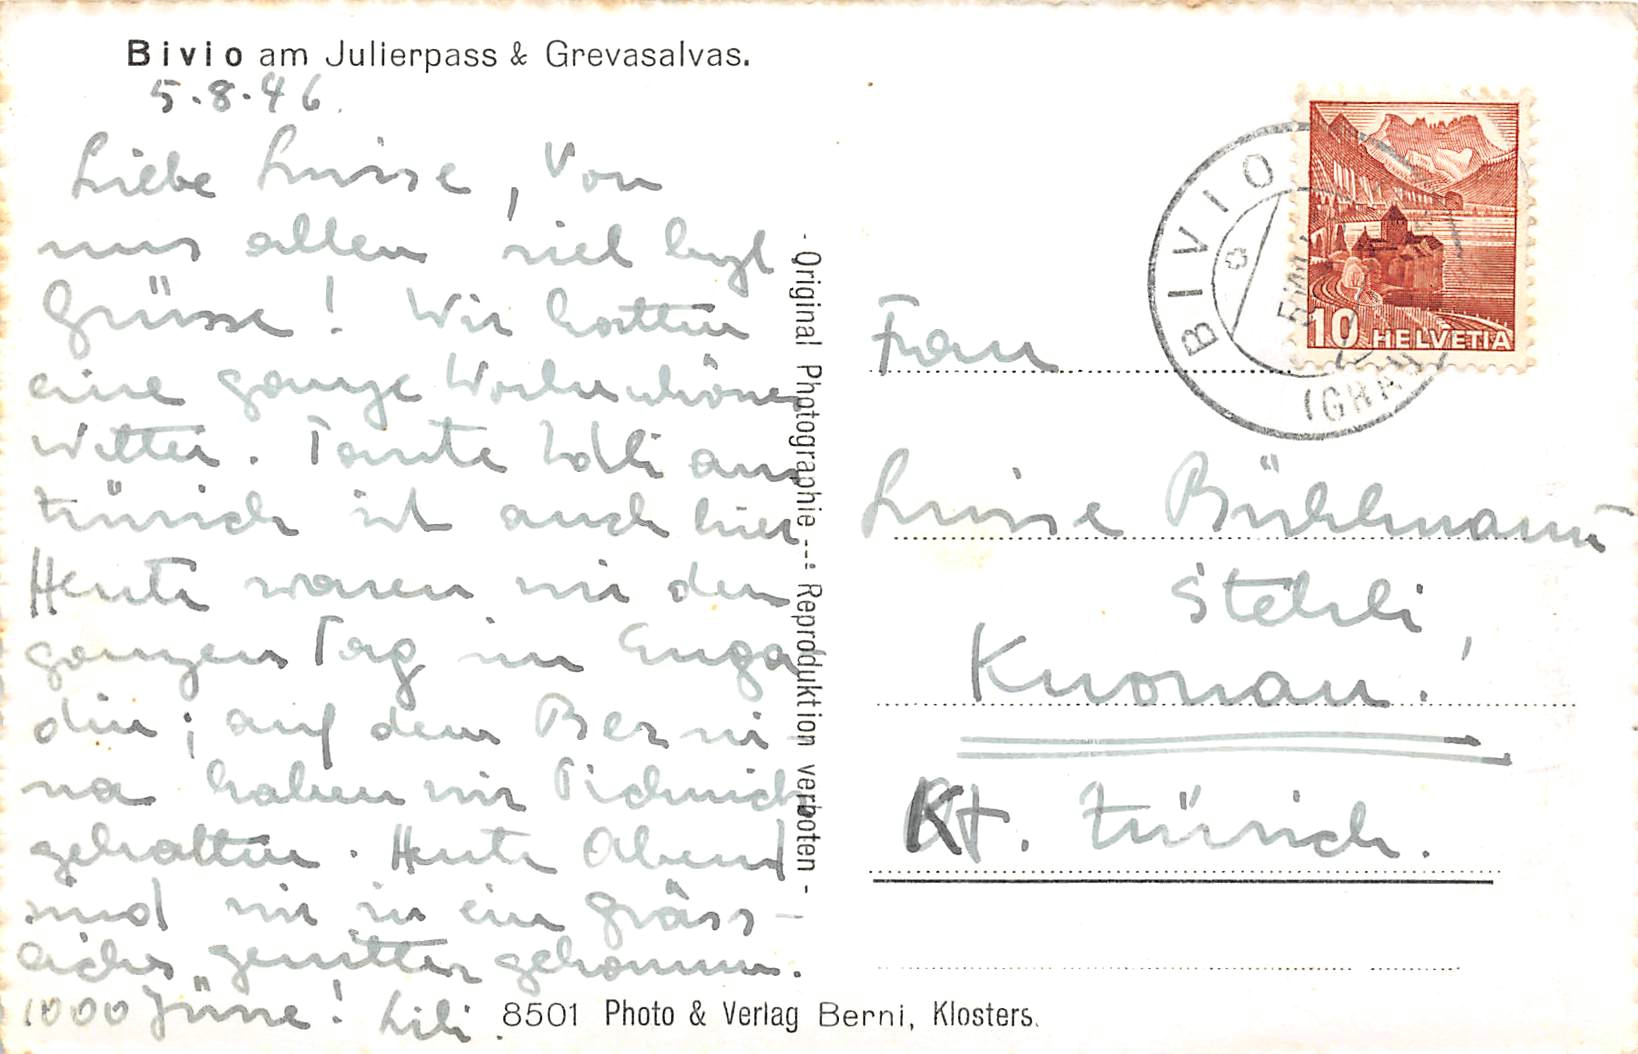 Bivio am Julierpass & Grevasalvas.
5.8.46.
Liebe Luise, Von
uns allen viel hzl
Grüsse! Wir hatten
eine ganze Woche schönes
Wetter. Tante Ldli aus
Zürich ist auch hier
Heute waren wir den
ganzen Tag im Enga
din; auf dem Berni-
na haben wir Picknick
gehalten. Heute Abend
sind wir in ein gräss-
liches Gewitter gekommen.
1000 Küsse! Lili.
- Original Photographie --- Reproduktion verboten -
8501 Photo & Verlag Berni, Klosters.
BIVIO
(GRAU
10 HELVETIA
Frau
Luise Bühlmann
Stehli,
Knonau.
Kt. Zürich.